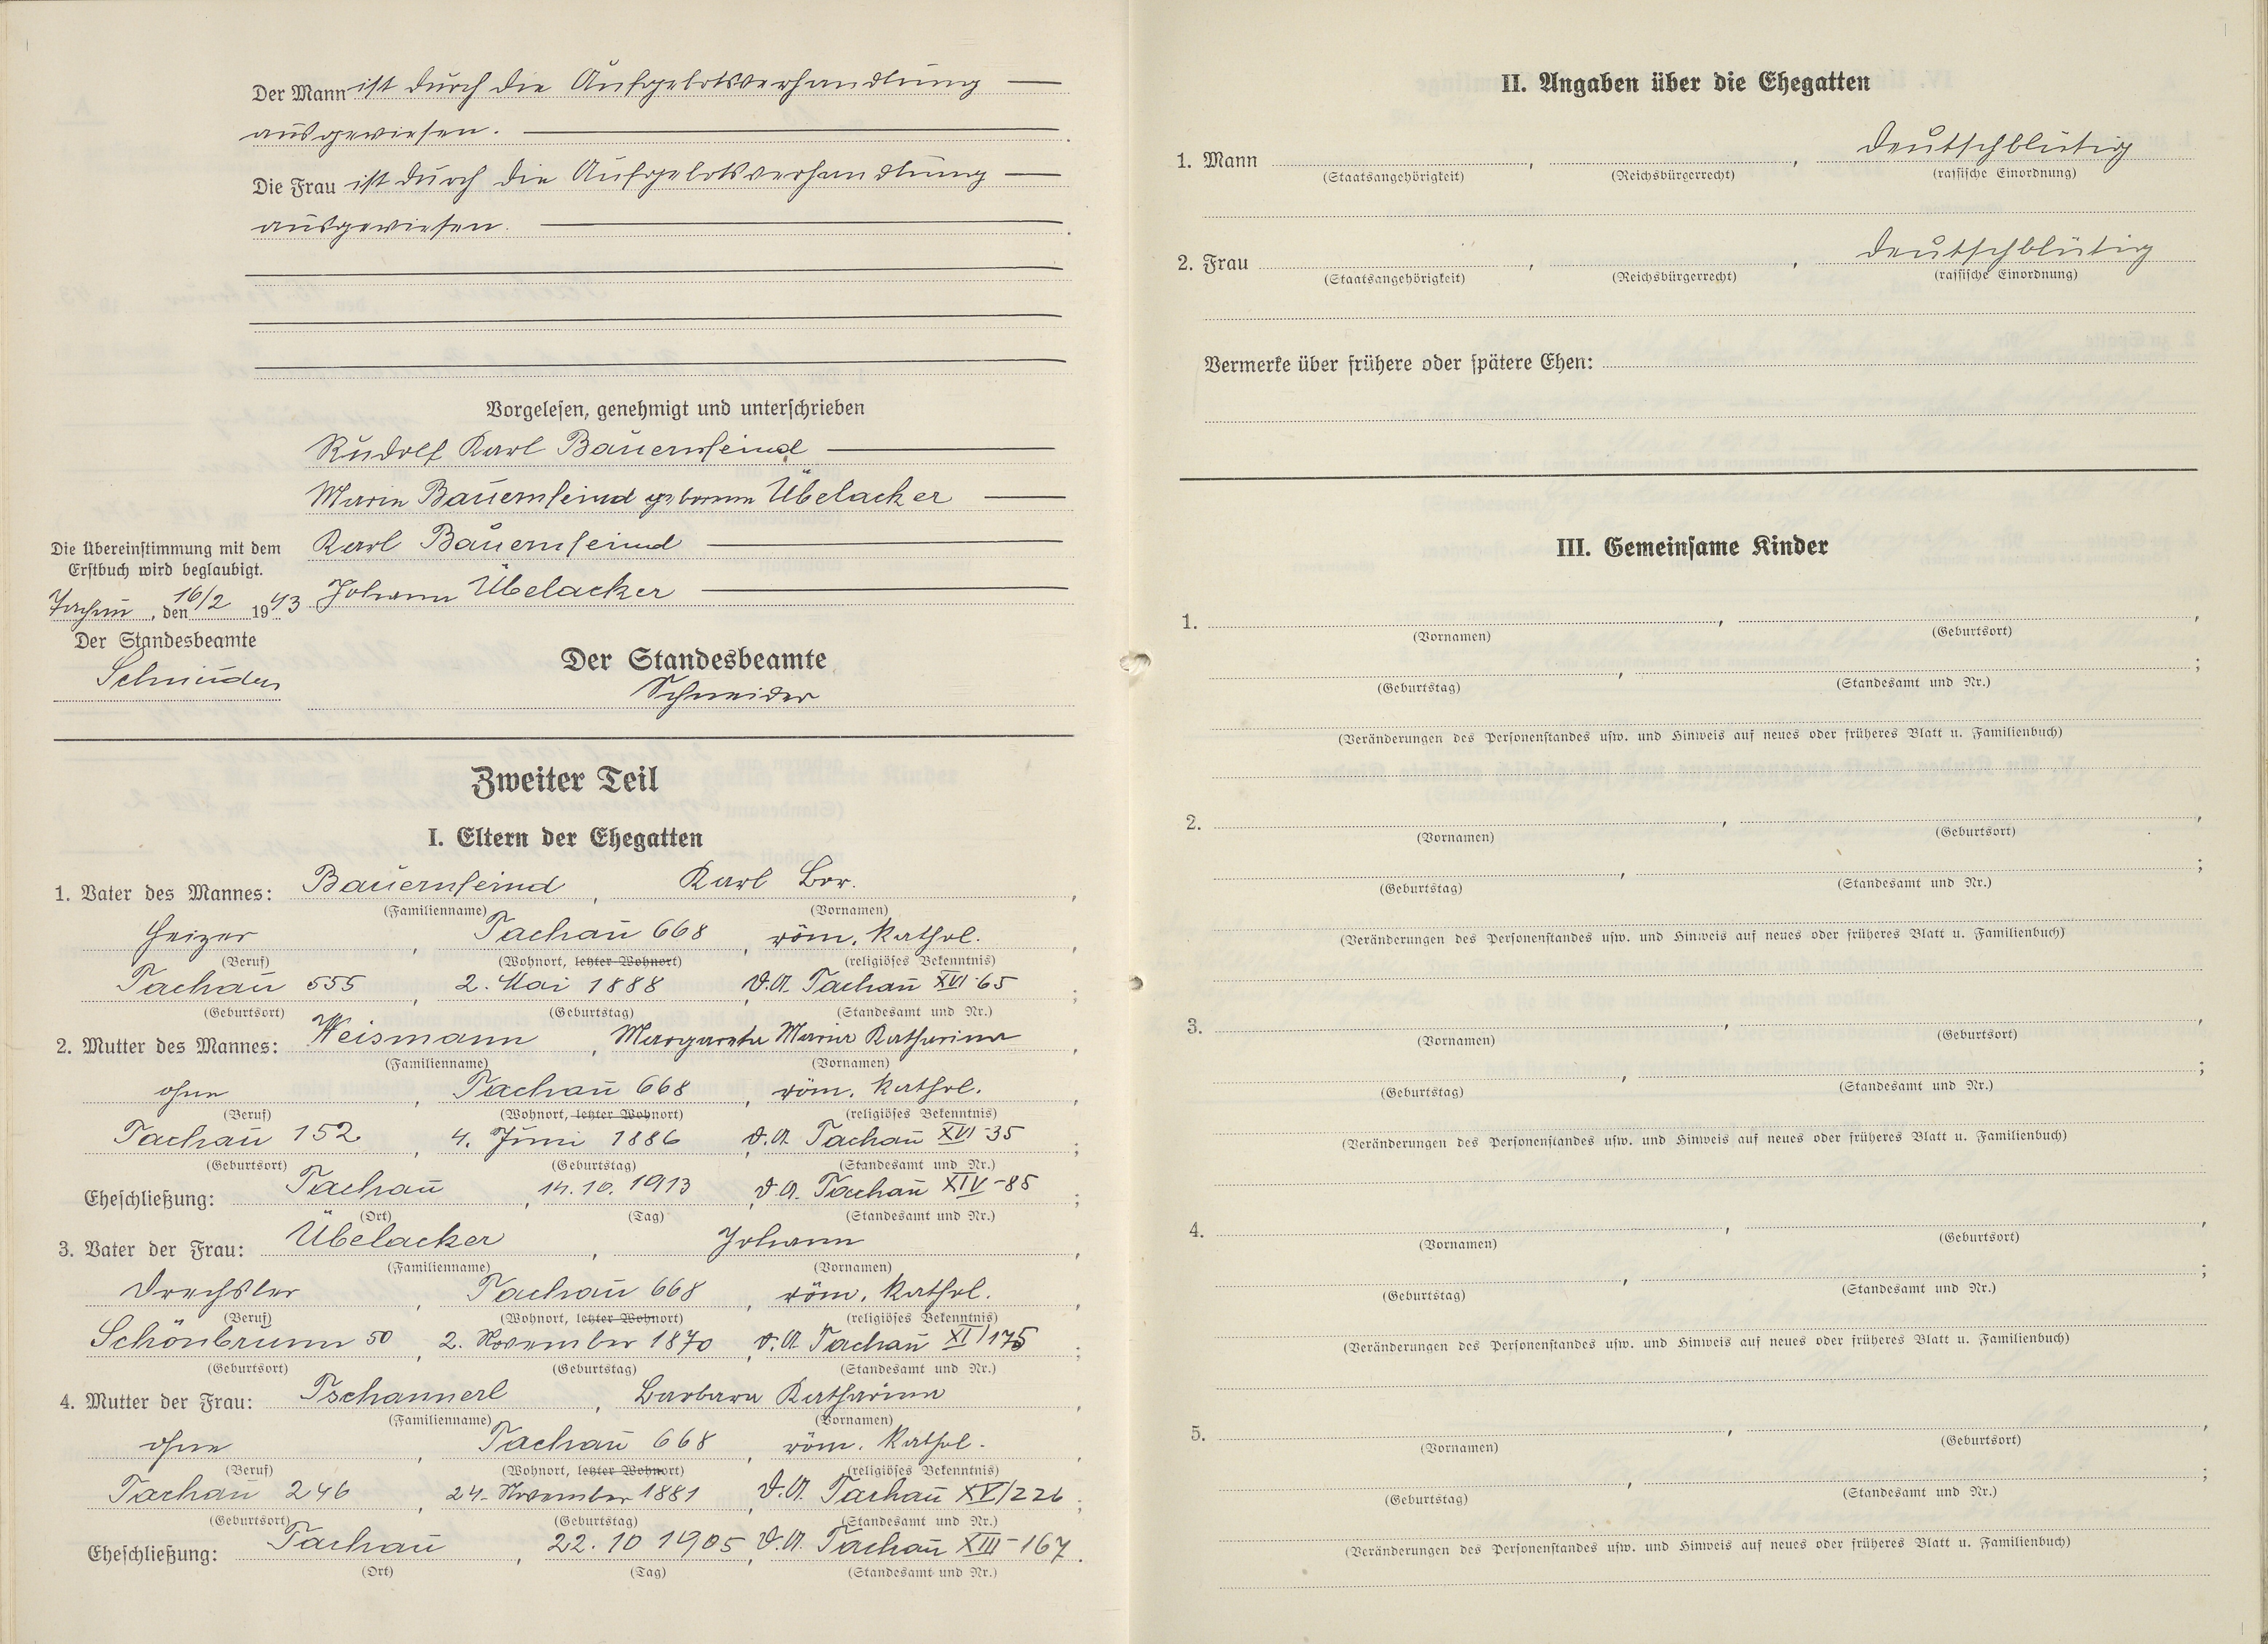 Der Mann ist durch die Aufgebotsverhandlung
ausgewiesen.
Die Frau ist durch die Aufgebotsverhandlung
ausgewiesen.
Vorgelesen, genehmigt und unterschrieben
Rudolf Karl Bauernfeind
Marie Bauernfeind geborene Übelacker
Karl Bauernfeind
Johann Übelacker
Die Übereinstimmung mit dem
Erstbuch wird beglaubigt.
Tachau, den 16/2 1943
Der Standesbeamte
Schneider
Der Standesbeamte
Schneider
Zweiter Teil
I. Eltern der Ehegatten
1. Vater des Mannes: Bauernfeind, Karl Bor.,
(Familienname) (Vornamen)
Heizer, Tachau 668, röm. kathol.,
(Beruf) (Wohnort, letzter Wohnort) (religiöses Bekenntnis)
Tachau 555, 2. Mai 1888, Tachau XVI-65;
(Geburtsort) (Geburtstag) (Standesamt und Nr.)
2. Mutter des Mannes: Weismann, Margareta Maria Katharina,
(Familienname) (Vornamen)
ohne, Tachau 668, röm. kathol.,
(Beruf) (Wohnort, letzter Wohnort) (religiöses Bekenntnis)
Tachau 152, 4. Juni 1886, Tachau XVI-35;
(Geburtsort) (Geburtstag) (Standesamt und Nr.)
Eheschließung: Tachau, 14.10.1913, Tachau XIV-85;
(Ort) (Tag) (Standesamt und Nr.)
3. Vater der Frau: Übelacker, Johann,
(Familienname) (Vornamen)
Drechsler, Tachau 668, röm. kathol.,
(Beruf) (Wohnort, letzter Wohnort) (religiöses Bekenntnis)
Schönbrunn 50, 2. November 1870, Tachau XI/175;
(Geburtsort) (Geburtstag) (Standesamt und Nr.)
4. Mutter der Frau: Tschannerl, Barbara Katharina,
(Familienname) (Vornamen)
ohne, Tachau 668, röm. kathol.
(Beruf) (Wohnort, letzter Wohnort) (religiöses Bekenntnis)
Tachau 246, 24. November 1881, Tachau XV/226;
(Geburtsort) (Geburtstag) (Standesamt und Nr.)
Eheschließung: Tachau, 22.10 1905, Tachau XIII-167.
(Ort) (Tag) (Standesamt und Nr.)
II. Angaben über die Ehegatten
1. Mann , , deutschblütig
(Staatsangehörigkeit) (Reichsbürgerrecht) (rassische Einordnung)
2. Frau , , deutschblütig
(Staatsangehörigkeit) (Reichsbürgerrecht) (rassische Einordnung)
Vermerke über frühere oder spätere Ehen:
III. Gemeinsame Kinder
1. , ,
(Vornamen) (Geburtsort)
, ;
(Geburtstag) (Standesamt und Nr.)
(Veränderungen des Personenstandes usw. und Hinweis auf neues oder früheres Blatt u. Familienbuch)
2. , ,
(Vornamen) (Geburtsort)
, ;
(Geburtstag) (Standesamt und Nr.)
(Veränderungen des Personenstandes usw. und Hinweis auf neues oder früheres Blatt u. Familienbuch)
3. , ,
(Vornamen) (Geburtsort)
, ;
(Geburtstag) (Standesamt und Nr.)
(Veränderungen des Personenstandes usw. und Hinweis auf neues oder früheres Blatt u. Familienbuch)
4. , ,
(Vornamen) (Geburtsort)
, ;
(Geburtstag) (Standesamt und Nr.)
(Veränderungen des Personenstandes usw. und Hinweis auf neues oder früheres Blatt u. Familienbuch)
5. , ,
(Vornamen) (Geburtsort)
, ;
(Geburtstag) (Standesamt und Nr.)
(Veränderungen des Personenstandes usw. und Hinweis auf neues oder früheres Blatt u. Familienbuch)